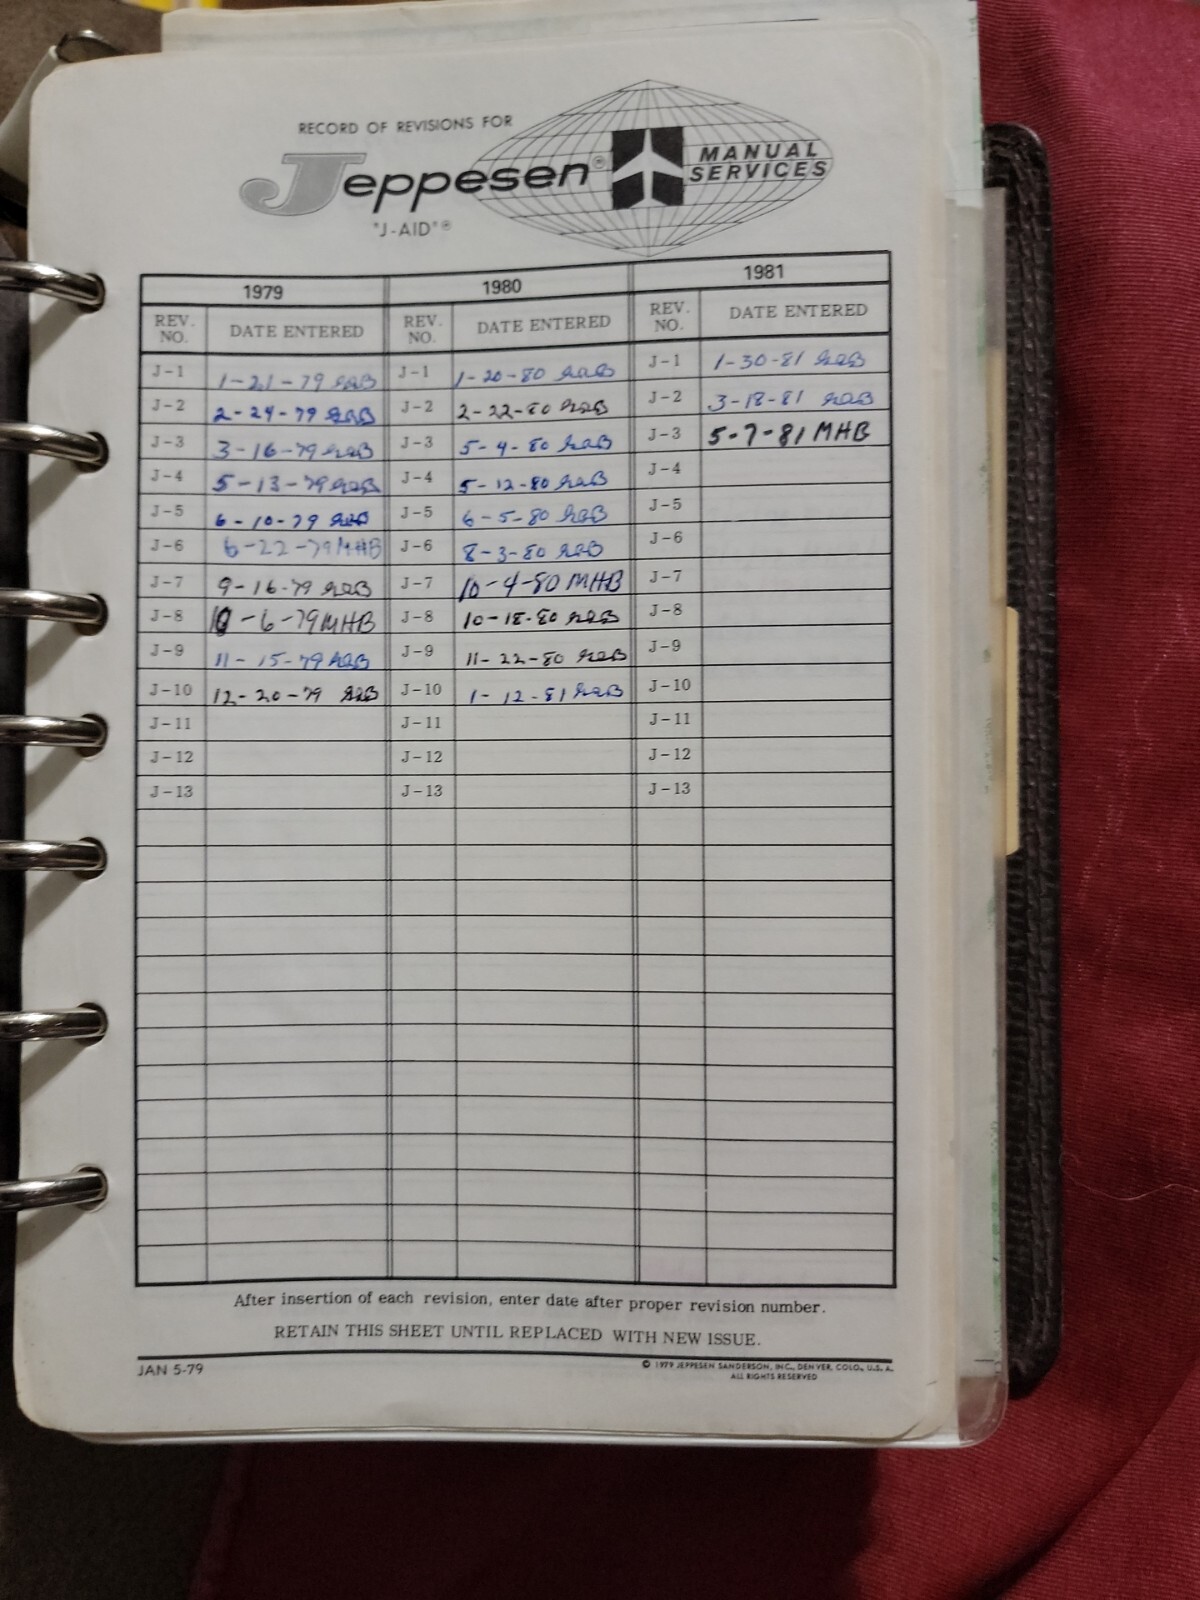 RECORD OF REVISIONS FOR
Jeppesen® MANUAL SERVICES
"J-AID"®
1979 1980 1981
REV. NO. DATE ENTERED REV. NO. DATE ENTERED REV. NO. DATE ENTERED
J-1 1-21-79 J-1 1-20-80 J-1 1-30-81
J-2 2-24-79 J-2 2-22-80 J-2 3-18-81
J-3 3-16-79 J-3 5-4-80 J-3 5-7-81 MHB
J-4 5-13-79 J-4 5-12-80 J-4
J-5 6-10-79 J-5 6-5-80 J-5
J-6 6-22-79 MHB J-6 8-3-80 J-6
J-7 9-16-79 J-7 10-4-80 MHB J-7
J-8 10-6-79 MHB J-8 10-18-80 J-8
J-9 11-15-79 J-9 11-22-80 J-9
J-10 12-20-79 J-10 1-12-81 J-10
J-11 J-11 J-11
J-12 J-12 J-12
J-13 J-13 J-13
After insertion of each revision, enter date after proper revision number.
RETAIN THIS SHEET UNTIL REPLACED WITH NEW ISSUE.
JAN 5-79 © 1979 JEPPESEN SANDERSON, INC., DENVER, COLO., U.S.A.
ALL RIGHTS RESERVED